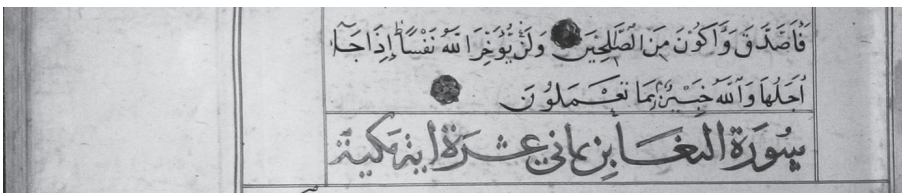 فَاَصَّدَّقَ وَاَكُوْنَ مِنَ الصّٰلِحِيْنَ وَلَنْ يُّؤَخِّرَ اللّٰهُ نَفْسًا اِذَا جَآءَ
اَجَلُهَا وَاللّٰهُ خَبِيْرٌۢ بِمَا تَعْمَلُوْنَ
سُورَة التغابن ثماني عشرة اية مكية